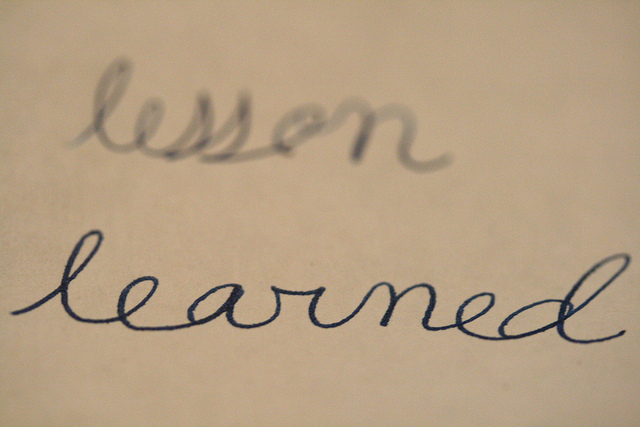 lesson
learned